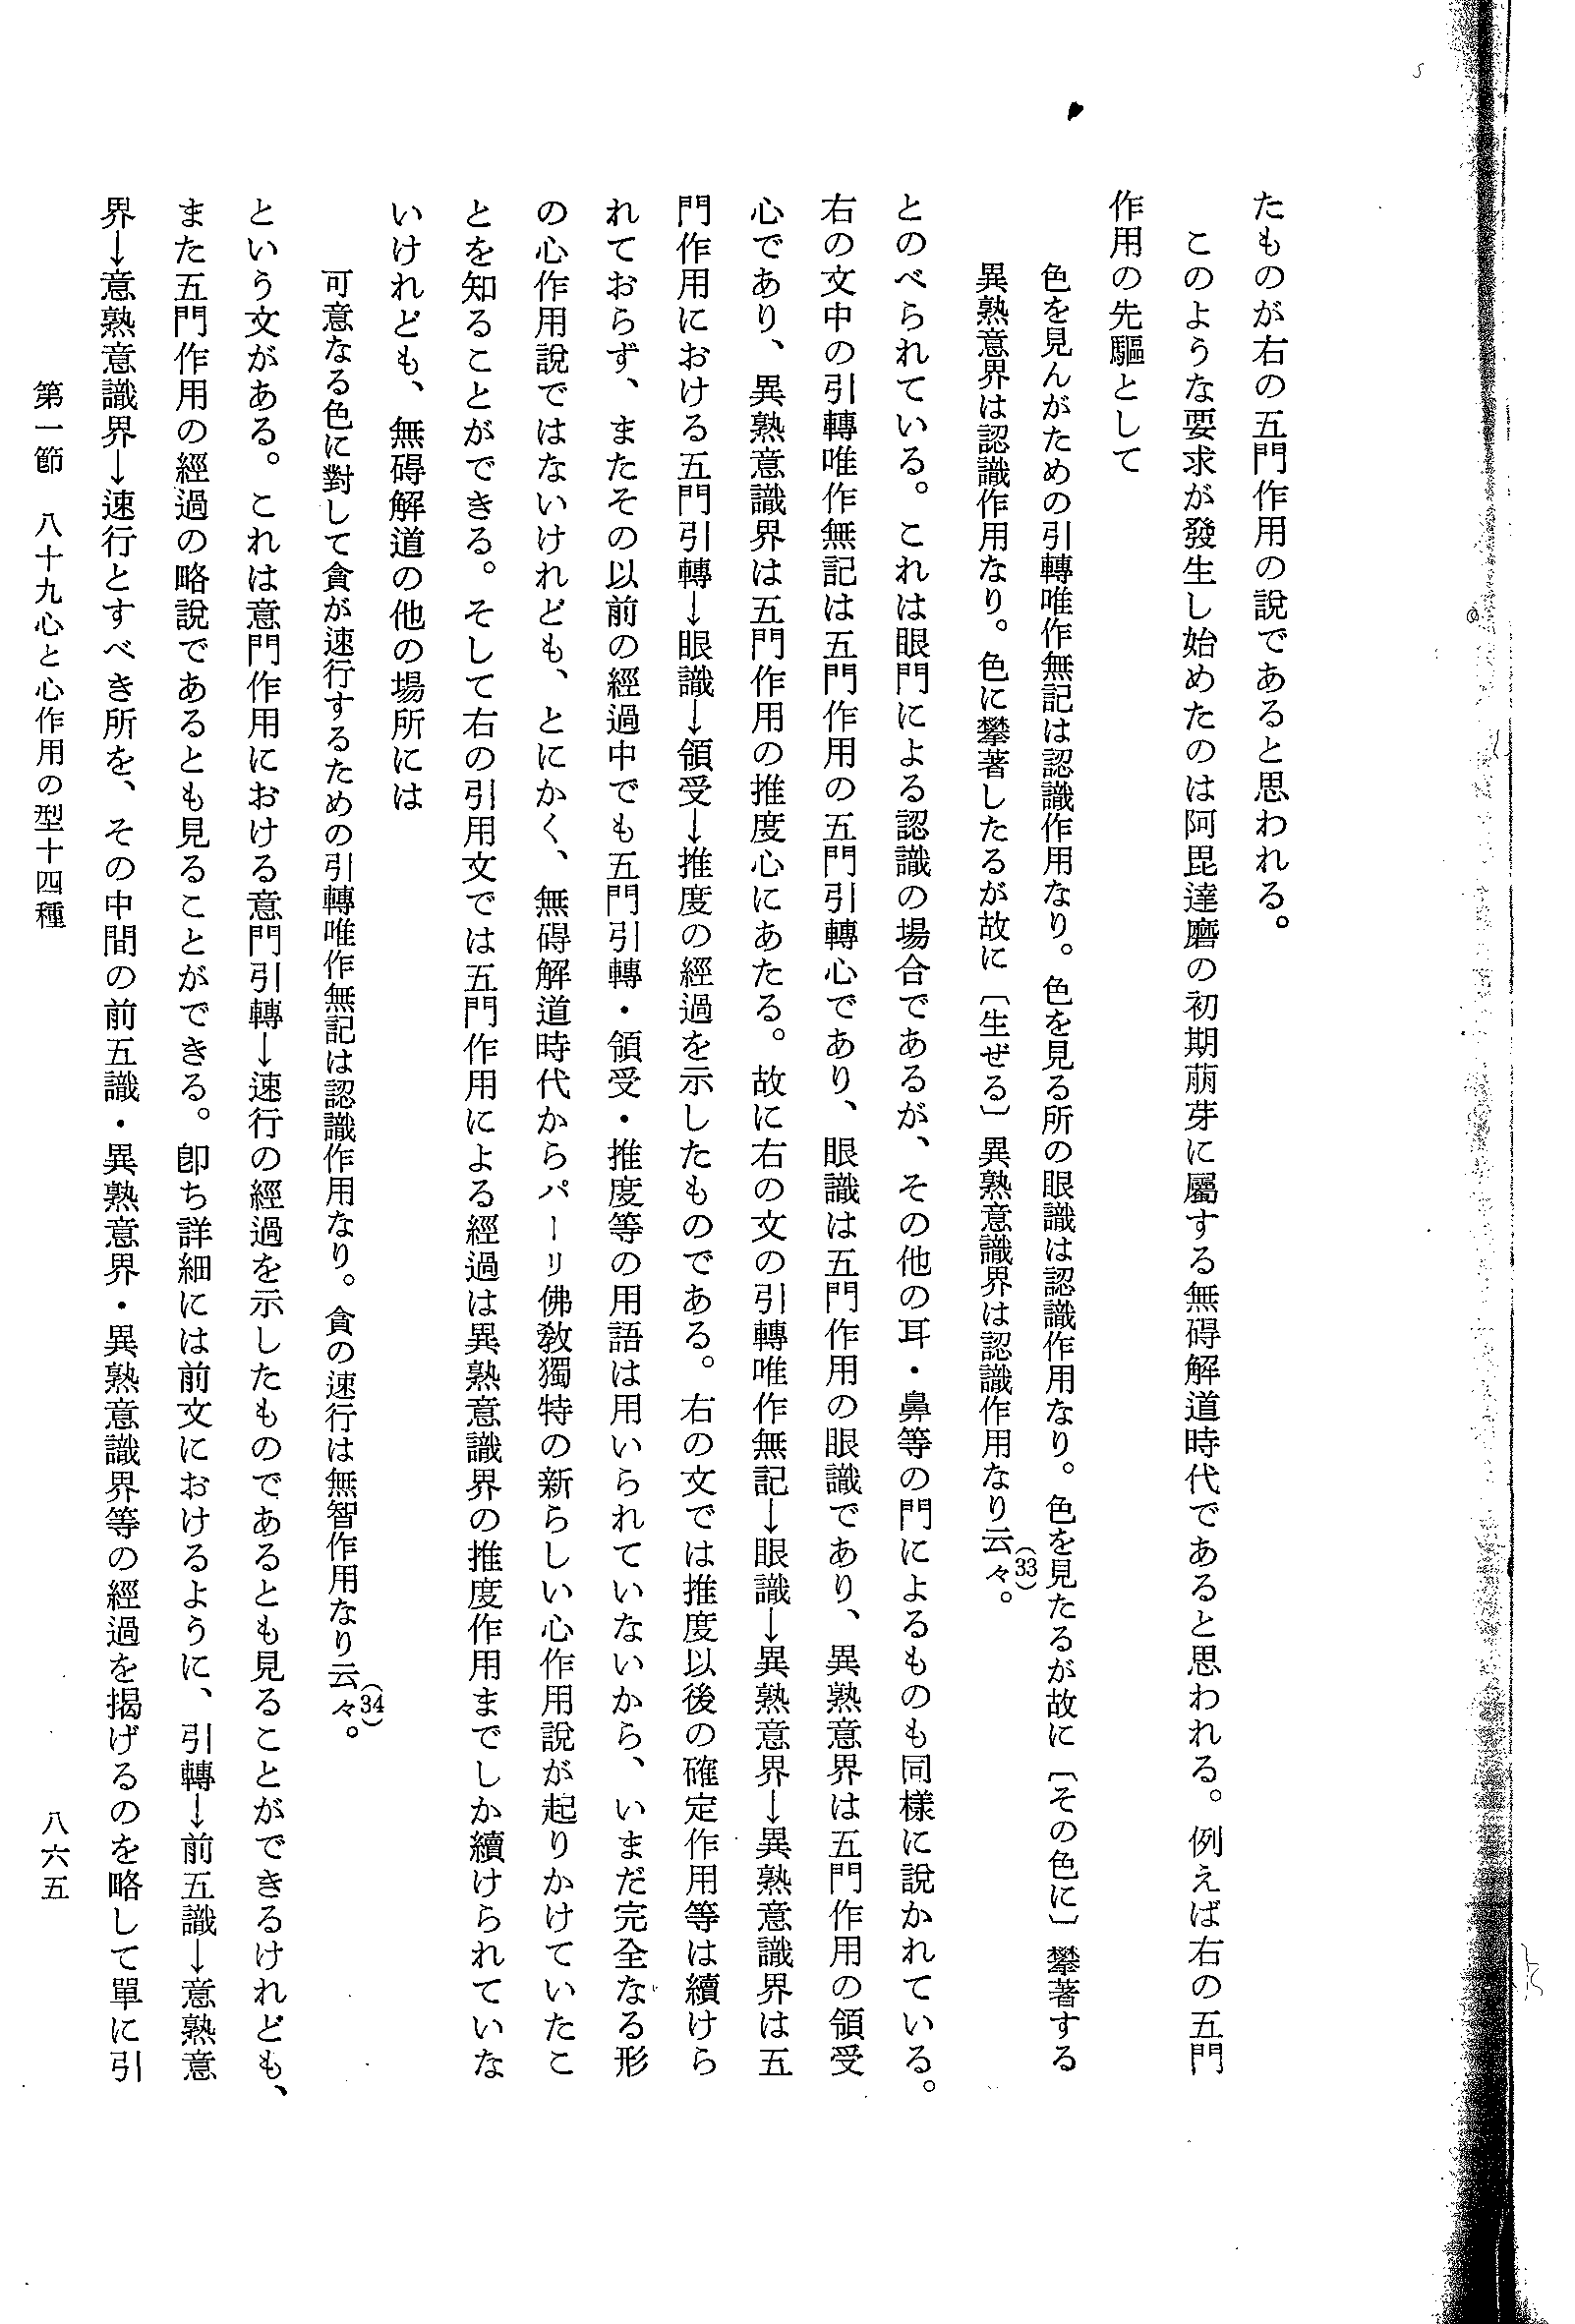 たものが右の五門作用の說であると思われる。
このような要求が發生し始めたのは阿毘達磨の初期萠芽に屬する無碍解道時代であると思われる。例えば右の五門
作用の先驅として
色を見んがための引轉唯作無記は認識作用なり。色を見る所の眼識は認識作用なり。色を見たるが故に〔その色に〕攀著する
異熟意界は認識作用なり。色に攀著したるが故に〔生ぜる〕異熟意識界は認識作用なり云々。(33)
とのべられている。これは眼門による認識の場合であるが、その他の耳・鼻等の門によるものも同樣に說かれている。
右の文中の引轉唯作無記は五門作用の五門引轉心であり、眼識は五門作用の眼識であり、異熟意界は五門作用の領受
心であり、異熟意識界は五門作用の推度心にあたる。故に右の文の引轉唯作無記→眼識→異熟意界→異熟意識界は五
門作用における五門引轉→眼識→領受→推度の經過を示したものである。右の文では推度以後の確定作用等は續けら
れておらず、またその以前の經過中でも五門引轉・領受・推度等の用語は用いられていないから、いまだ完全なる形
の心作用說ではないけれども、とにかく、無碍解道時代からパーリ佛敎獨特の新らしい心作用說が起りかけていたこ
とを知ることができる。そして右の引用文では五門作用による經過は異熟意識界の推度作用までしか續けられていな
いけれども、無碍解道の他の場所には
可意なる色に對して貪が速行するための引轉唯作無記は認識作用なり。貪の速行は無智作用なり云々。(34)
という文がある。これは意門作用における意門引轉→速行の經過を示したものであるとも見ることができるけれども、
また五門作用の經過の略說であるとも見ることができる。卽ち詳細には前文におけるように、引轉→前五識→意熟意
界→意熟意識界→速行とすべき所を、その中間の前五識・異熟意界・異熟意識界等の經過を揭げるのを略して單に引
第一節　八十九心と心作用の型十四種
八六五